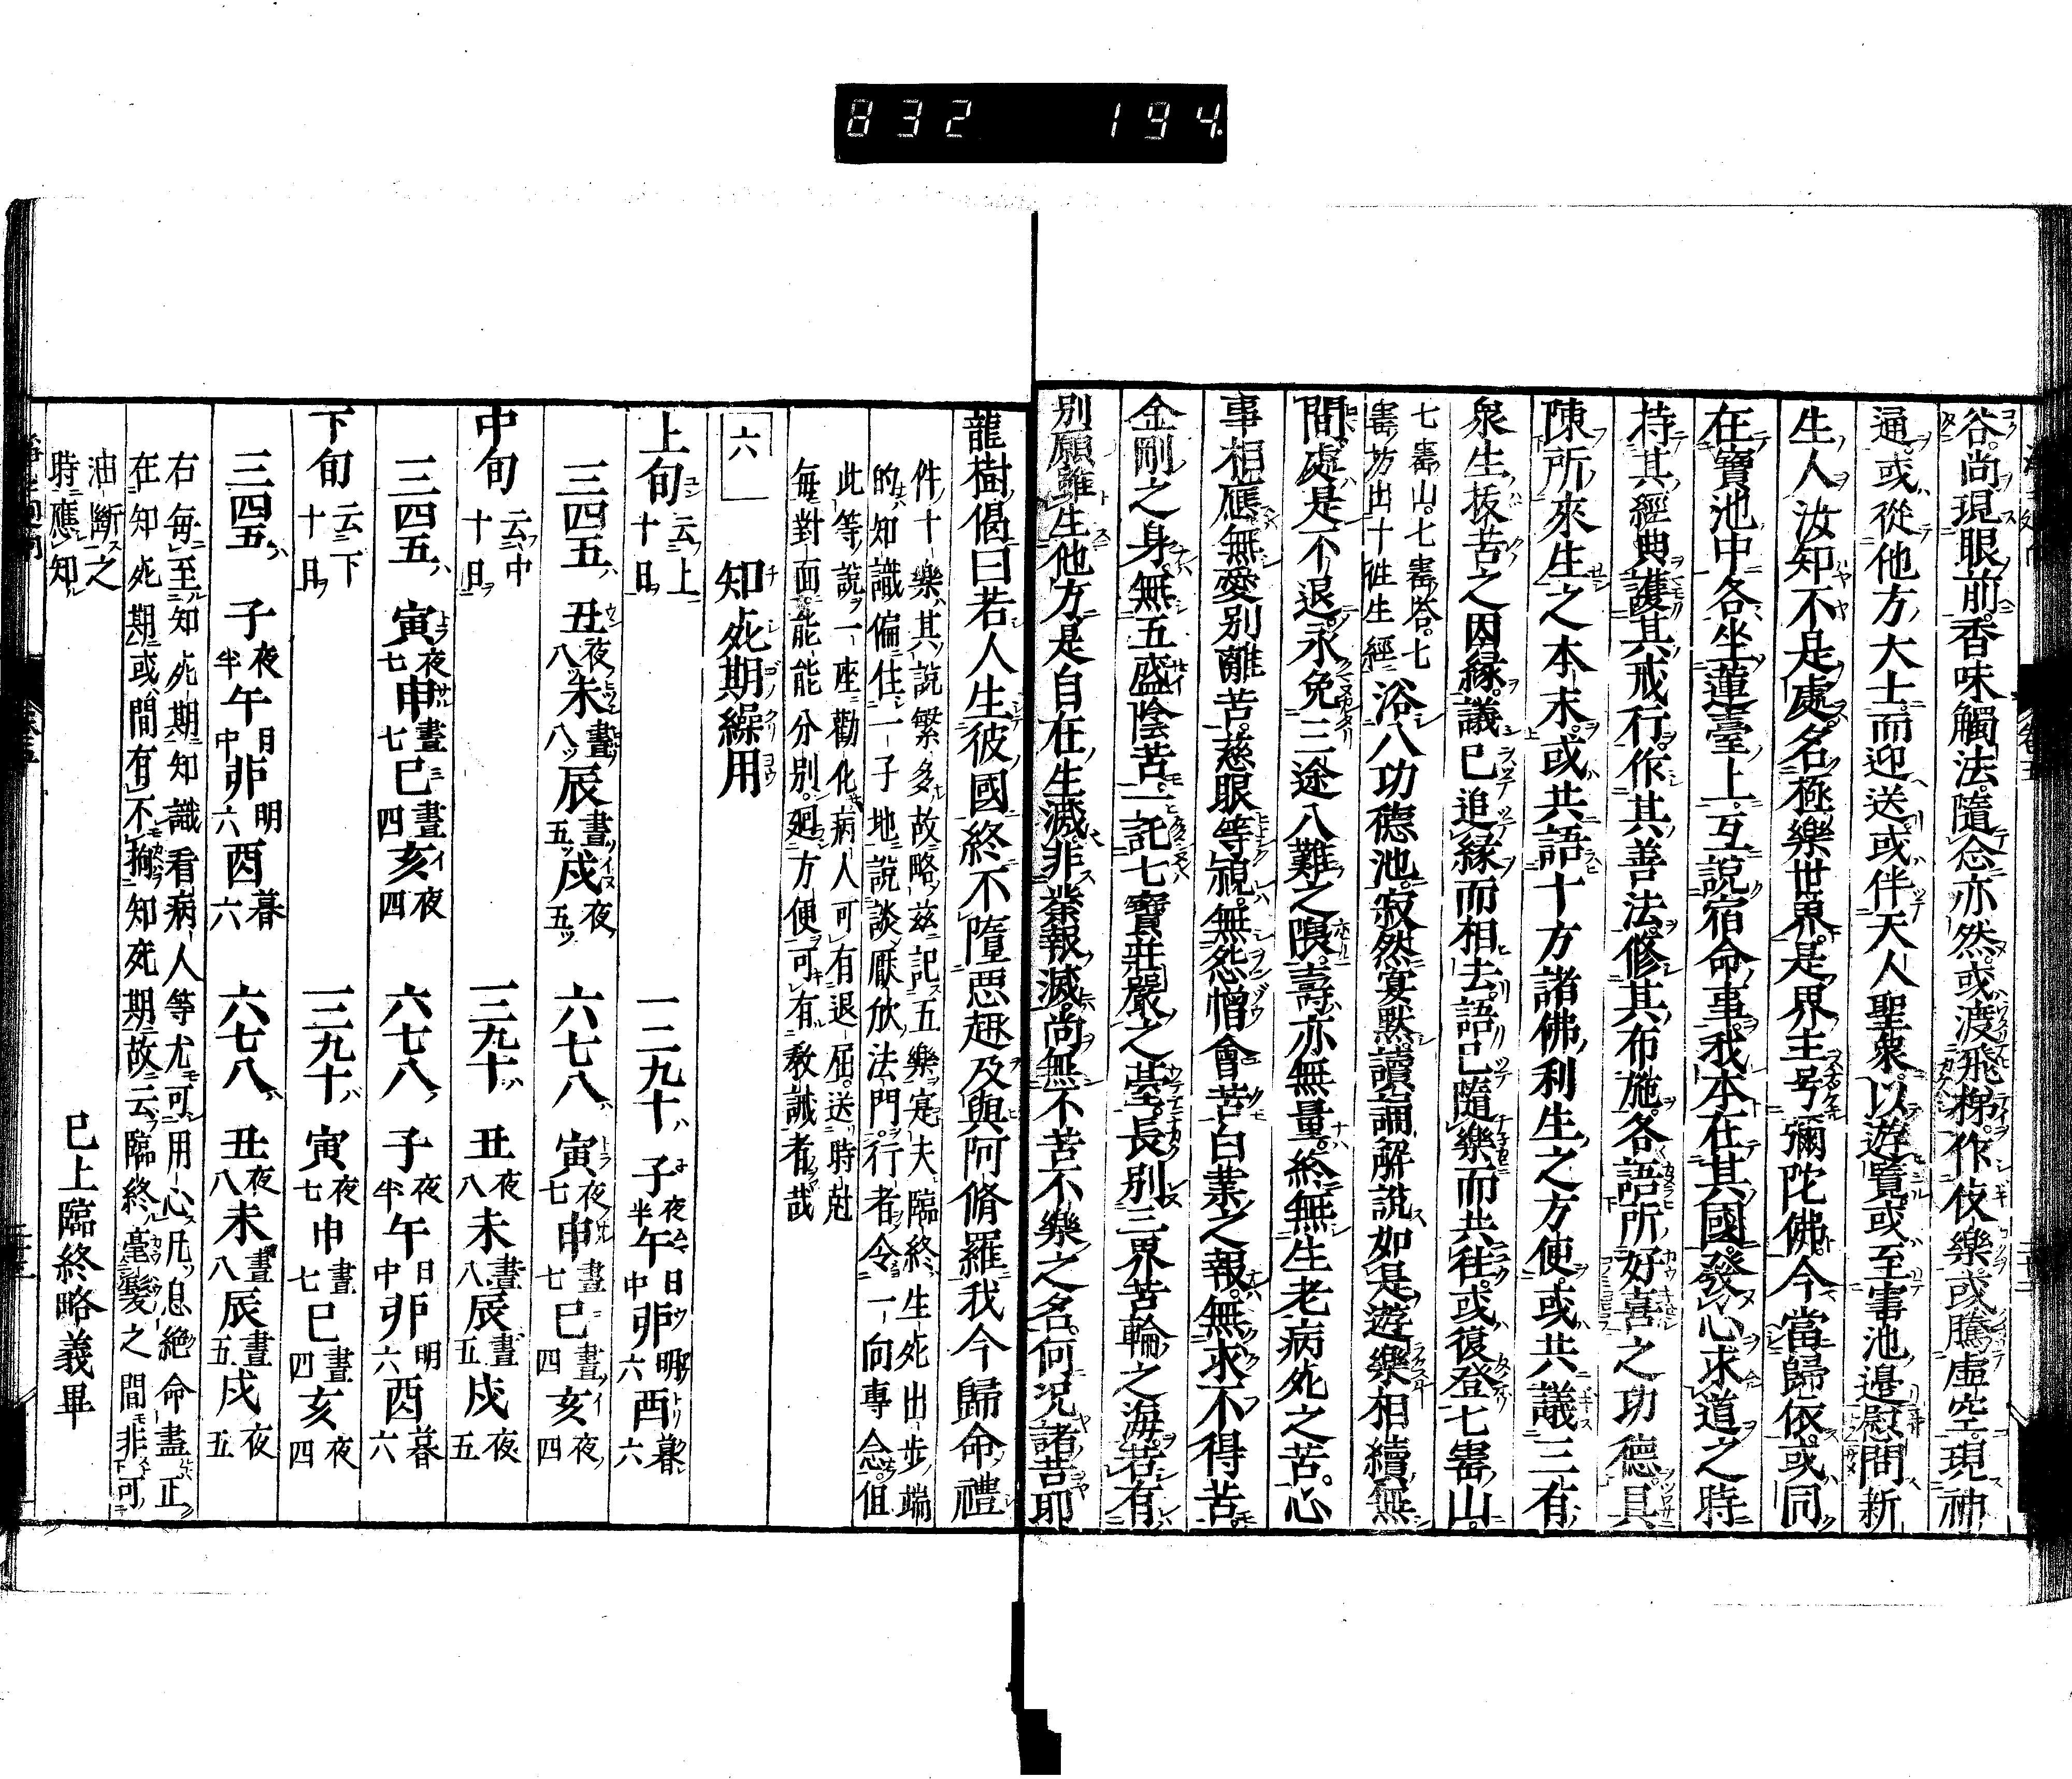 832 194
谷。尚現眼前。香味觸法。隨念亦然。或渡飛梯。作伎樂。或騰虛空。現神
通。或從他方大士。而迎送。或伴天人聖衆。以遊覽。或至寶池邊慰問新
生人。汝知不。是處名極樂世界。是界主号彌陀佛。今當歸依。或同
在寶池中。各坐蓮臺上。互說宿命事。我本在其國。發心求道之時
持其經典。護其戒行。作其善法。修其布施。各語所好喜之功德。具
陳所來生之本末。或共語十方諸佛利生之方便。或共議三有
衆生拔苦之因緣。議已追緣而相去。語已隨樂而共往。或復登七寶山。
七寶山。七寶塔。七
寶坊出十往生經
浴八功德池。寂然宴默。讀誦解說。如是遊樂相續無
間。處是不退。永免三途八難之隈。壽亦無量。終無生老病死之苦。心
事相應。無愛別離苦。慈眼等視。無怨憎會苦。白業之報。無求不得苦。
金剛之身。無五盛陰苦。一託七寶莊嚴之臺。長別三界苦輪之海。若有
別願。雖生他方。是自在生滅。非業報滅。尚無不苦不樂之名。何况諸苦耶
龍樹偈曰若人生彼國終不墮惡趣及與阿脩羅我今歸命禮
件十樂其說繁多。故略兹記五樂。寔夫臨終生死出步端
的知識偏住一子地說談厭欣法門。行者令一向專念。但
此等說一座勸化病人可有退屈。送時尅
每對面。能能分別。廻方便可有教誡者哉
六 知死期繰用
上旬 云上十日 一二九十 子夜半 午日中 卯明六 酉暮六
三四五 丑夜八 未晝八 辰晝五 戌夜五 六七八 寅夜七 申晝七 巳晝四 亥夜四
中旬 云中十日 一三九十 丑夜八 未晝八 辰晝五 戌夜五
三四五 寅夜七 申晝七 巳晝四 亥夜四 六七八 子夜半 午日中 卯明六 酉暮六
下旬 云下十日 一三九十 寅夜七 申晝七 巳晝四 亥夜四
三四五 子夜半 午日中 卯明六 酉暮六 六七八 丑夜八 未晝八 辰晝五 戌夜五
右每至知死期知識看病人等尤可用心凡息絕命盡正
在知死期或間有不拘知死期故云臨終毫髮之間非可
油斷之
時應知 已上臨終略義畢